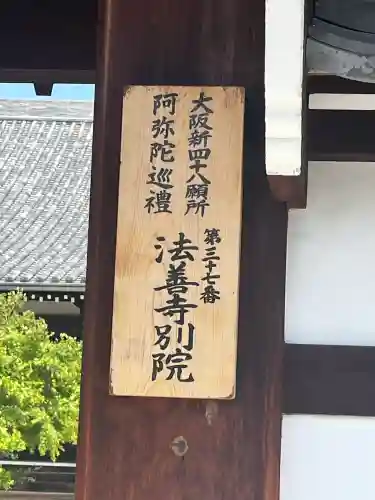 大阪新四十八願所
阿弥陀巡禮
第三十七番
法善寺別院